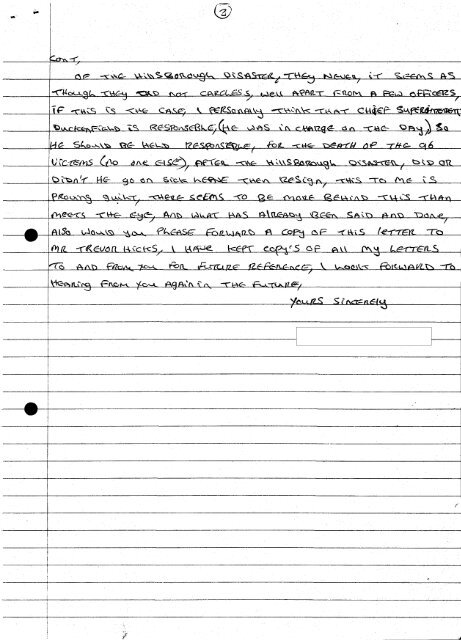 3
CONT,
OF THE HILLSBOROUGH DISASTER, THEY NEVER, IT SEEMS AS
THOUGH THEY DID NOT CARELESS, WELL APART FROM A FEW OFFICERS,
IF THIS IS THE CASE, I PERSONALY THINK THAT CHIEF SUPERINTENDENT
DUCKENFIELD IS RESPONSEBLE, (HE WAS IN CHARGE ON THE DAY,) SO
HE SHOULD BE HELD RESPONSEBLE, FOR THE DEATH OF THE 96
VICTEMS (NO ONE ELSE), AFTER THE HILLSBOROUGH DISASTER, DID OR
DIDN'T HE GO ON SICK LEAVE THEN RESIGN, THIS TO ME IS
PROVING GUILT, THERE SEEMS TO BE MORE BEHIND THIS THAN
MEETS THE EYE, AND WHAT HAS ALREADY BEEN SAID AND DONE,
ALSO WOULD YOU PLEASE FORWARD A COPY OF THIS LETTER TO
MR TREVOR HICKS, I HAVE KEPT COPY'S OF ALL MY LETTERS
TO AND FROM YOU FOR FUTURE REFERENCE, I LOOK FORWARD TO
HEARING FROM YOU AGAIN IN THE FUTURE,
YOURS SINCERELY